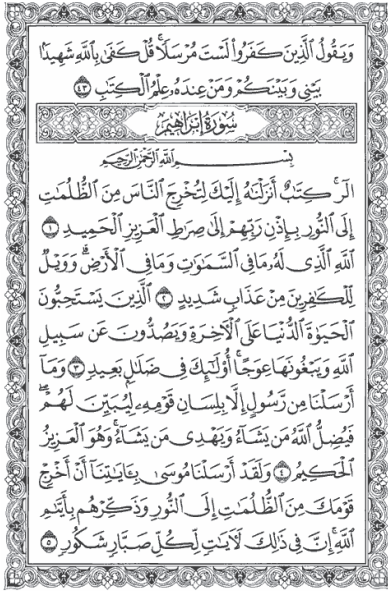 وَيَقُولُ الَّذِينَ كَفَرُوا۟ لَسْتَ مُرْسَلًا ۚ قُلْ كَفَىٰ بِاللَّهِ شَهِيدًۢا
بَيْنِى وَبَيْنَكُمْ وَمَنْ عِندَهُۥ عِلْمُ الْكِتَٰبِ ٤٣
سُورَةُ إِبْرَاهِيمَ
بِسْمِ اللَّهِ الرَّحْمَٰنِ الرَّحِيمِ
الٓر ۚ كِتَٰبٌ أَنزَلْنَٰهُ إِلَيْكَ لِتُخْرِجَ النَّاسَ مِنَ الظُّلُمَٰتِ
إِلَى النُّورِ بِإِذْنِ رَبِّهِمْ إِلَىٰ صِرَٰطِ الْعَزِيزِ الْحَمِيدِ ١
اللَّهِ الَّذِى لَهُۥ مَا فِى السَّمَٰوَٰتِ وَمَا فِى الْأَرْضِ ۗ وَوَيْلٌ
لِّلْكَٰفِرِينَ مِنْ عَذَابٍ شَدِيدٍ ٢ الَّذِينَ يَسْتَحِبُّونَ
الْحَيَوٰةَ الدُّنْيَا عَلَى الْءَاخِرَةِ وَيَصُدُّونَ عَن سَبِيلِ
اللَّهِ وَيَبْغُونَهَا عِوَجًا ۚ أُو۟لَٰٓئِكَ فِى ضَلَٰلٍۭ بَعِيدٍ ٣ وَمَآ
أَرْسَلْنَا مِن رَّسُولٍ إِلَّا بِلِسَانِ قَوْمِهِۦ لِيُبَيِّنَ لَهُمْ ۖ
فَيُضِلُّ اللَّهُ مَن يَشَآءُ وَيَهْدِى مَن يَشَآءُ ۚ وَهُوَ الْعَزِيزُ
الْحَكِيمُ ٤ وَلَقَدْ أَرْسَلْنَا مُوسَىٰ بِـَٔايَٰتِنَآ أَنْ أَخْرِجْ
قَوْمَكَ مِنَ الظُّلُمَٰتِ إِلَى النُّورِ وَذَكِّرْهُم بِأَيَّىٰمِ
اللَّهِ ۚ إِنَّ فِى ذَٰلِكَ لَءَايَٰتٍ لِّكُلِّ صَبَّارٍ شَكُورٍ ٥